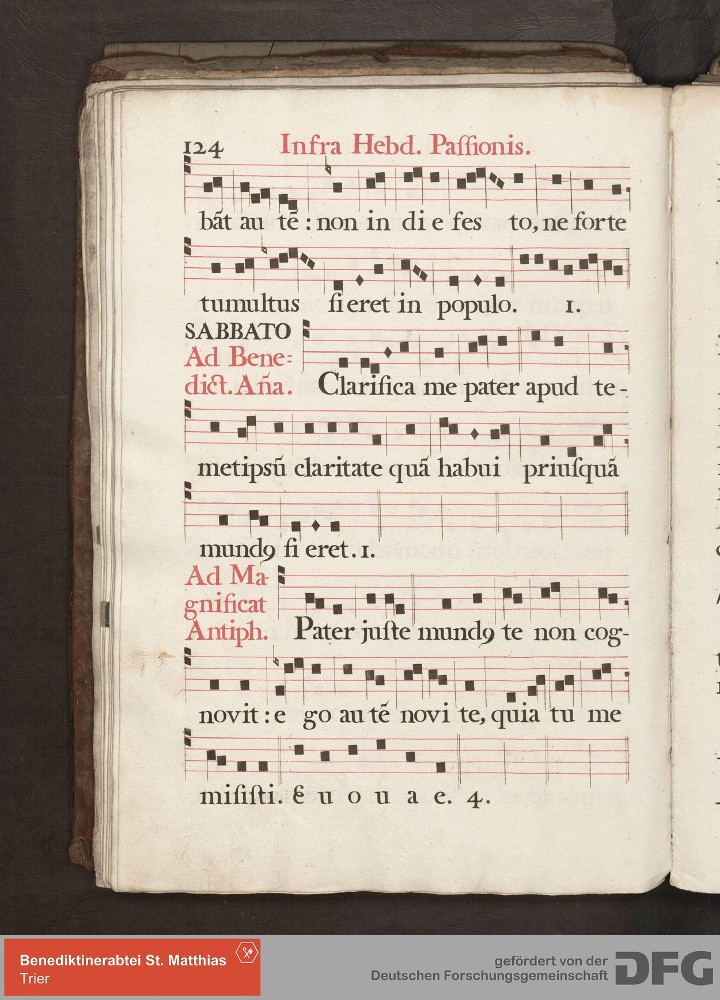 124 Infra Hebd. Paſſionis.
bãt au tẽ : non in di e fes to, ne forte
tumultus fieret in populo. 1.
SABBATO
Ad Bene=
dict. Añа.
Clarifica me pater apud te-
metipsũ claritate quã habui priuſquã
mundꝯ fi eret. 1.
Ad Ma-
gnificat
Antiph.
Pater juſte mundꝯ te non cog-
novit : e go au tẽ novi te, quia tu me
miſiſti. E u o u a e. 4.
Benediktinerabtei St. Matthias
Trier
gefördert von der
Deutschen Forschungsgemeinschaft
DFG